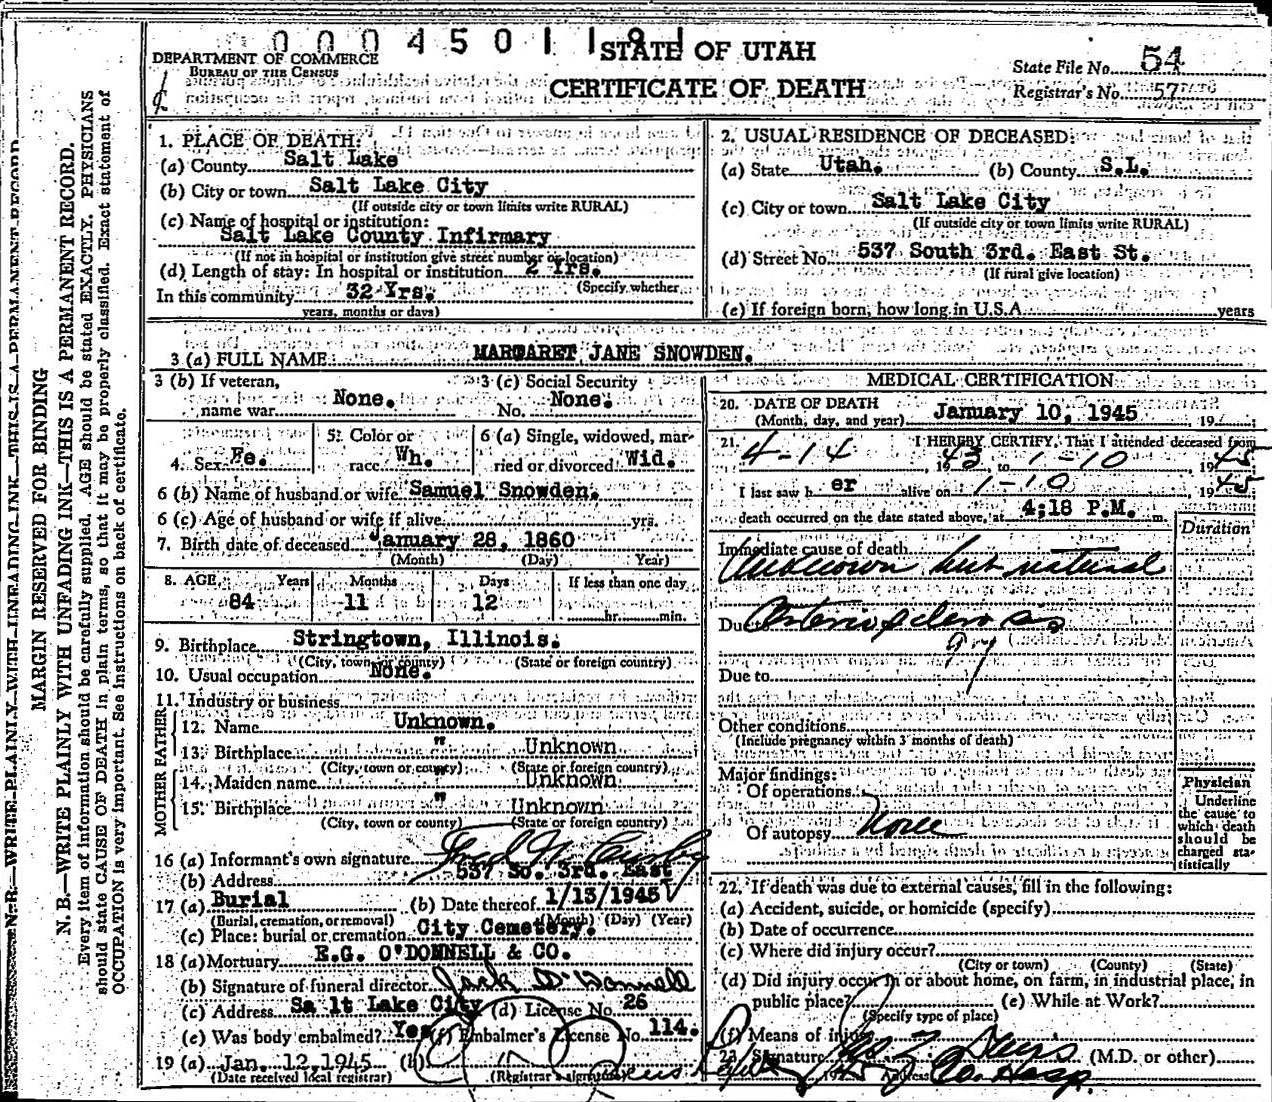 0004501191
DEPARTMENT OF COMMERCE
BUREAU OF THE CENSUS
STATE OF UTAH
CERTIFICATE OF DEATH
State File No. 54
Registrar's No. 57
MARGIN RESERVED FOR BINDING
N. B.—WRITE PLAINLY WITH UNFADING INK—THIS IS A PERMANENT RECORD.
Every item of information should be carefully supplied. AGE should be stated EXACTLY. PHYSICIANS
should state CAUSE OF DEATH in plain terms, so that it may be properly classified. Exact statement of
OCCUPATION is very important. See instructions on back of certificate.
1. PLACE OF DEATH:
(a) County Salt Lake
(b) City or town Salt Lake City
(If outside city or town limits write RURAL)
(c) Name of hospital or institution:
Salt Lake County Infirmary
(If not in hospital or institution give street number or location)
(d) Length of stay: In hospital or institution 2 Yrs.
(Specify whether
In this community 32 Yrs.
years, months or days)
2. USUAL RESIDENCE OF DECEASED:
(a) State Utah. (b) County S.L.
(c) City or town Salt Lake City
(If outside city or town limits write RURAL)
(d) Street No. 537 South 3rd. East St.
(If rural give location)
(e) If foreign born, how long in U.S.A. years
3 (a) FULL NAME MARGARET JANE SNOWDEN.
3 (b) If veteran, name war None.
3 (c) Social Security No. None.
4. Sex Fe.
5. Color or race Wh.
6 (a) Single, widowed, married or divorced Wid.
6 (b) Name of husband or wife Samuel Snowden.
6 (c) Age of husband or wife if alive yrs.
7. Birth date of deceased January 28, 1860
(Month) (Day) Year)
8. AGE Years Months Days If less than one day
84 11 12 hr. min.
9. Birthplace Stringtown, Illinois.
(City, town or county) (State or foreign country)
10. Usual occupation None.
11. Industry or business
FATHER
12. Name Unknown.
13. Birthplace " Unknown
(City, town or county) (State or foreign country)
MOTHER
14. Maiden name " Unknown
15. Birthplace Unknown
(City, town or county) (State or foreign country)
16 (a) Informant's own signature Fred
(b) Address 537 So. 3rd. East
17 (a) Burial (b) Date thereof 1/13/1945
(Burial, cremation, or removal) (Month) (Day) (Year)
(c) Place: burial or cremation City Cemetery.
18 (a) Mortuary E.G. O'DONNELL & CO.
(b) Signature of funeral director Jack O'Donnell
(c) Address Salt Lake City (d) License No. 26
(e) Was body embalmed? Yes (f) Embalmer's License No. 114.
19 (a) Jan. 12, 1945 (b)
(Date received local registrar) (Registrar's signature)
MEDICAL CERTIFICATION
20. DATE OF DEATH January 10, 1945 19
(Month, day, and year)
21. I HEREBY CERTIFY, That I attended deceased from
4-14 1943, to 1-10, 1945
I last saw her alive on 1-10, 1945
death occurred on the date stated above, at 4:18 P.M. m.
Duration
Immediate cause of death
Unknown but natural
Due to Arteriosclerosis
97
Due to
Other conditions
(Include pregnancy within 3 months of death)
Major findings:
Of operations
Of autopsy None
Physician
Underline
the cause to
which death
should be
charged sta-
tistically
22. If death was due to external causes, fill in the following:
(a) Accident, suicide, or homicide (specify)
(b) Date of occurrence
(c) Where did injury occur?
(City or town) (County) (State)
(d) Did injury occur in or about home, on farm, in industrial place, in
public place? (e) While at Work?
(Specify type of place)
(f) Means of injury
23. Signature (M.D. or other)
Address Co. Hosp.